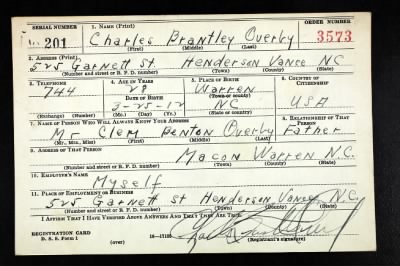 SERIAL NUMBER 1. NAME (Print) ORDER NUMBER
201 Charles Brantley Overby 3573
(First) (Middle) (Last)
2. ADDRESS (Print)
525 Garnett St. Henderson Vance NC
(Number and street or R. F. D. number) (Town) (County) (State)
3. TELEPHONE 4. AGE IN YEARS 5. PLACE OF BIRTH 6. COUNTRY OF CITIZENSHIP
744 28 Warren
(Town or county)
DATE OF BIRTH
3-25-12 NC USA
(Exchange) (Number) (Mo.) (Day) (Yr.) (State or country)
7. NAME OF PERSON WHO WILL ALWAYS KNOW YOUR ADDRESS 8. RELATIONSHIP OF THAT PERSON
Mr Clem Benton Overby Father
(Mr., Mrs., Miss) (First) (Middle) (Last)
9. ADDRESS OF THAT PERSON
Macon Warren N.C.
(Number and street or R. F. D. number) (Town) (County) (State)
10. EMPLOYER'S NAME
Myself
11. PLACE OF EMPLOYMENT OR BUSINESS
525 Garnett St Henderson Vance N.C.
(Number and street or R. F. D. number) (Town) (County) (State)
I AFFIRM THAT I HAVE VERIFIED ABOVE ANSWERS AND THAT THEY ARE TRUE.
REGISTRATION CARD
D. S. S. Form 1 (over) (Registrant's signature)